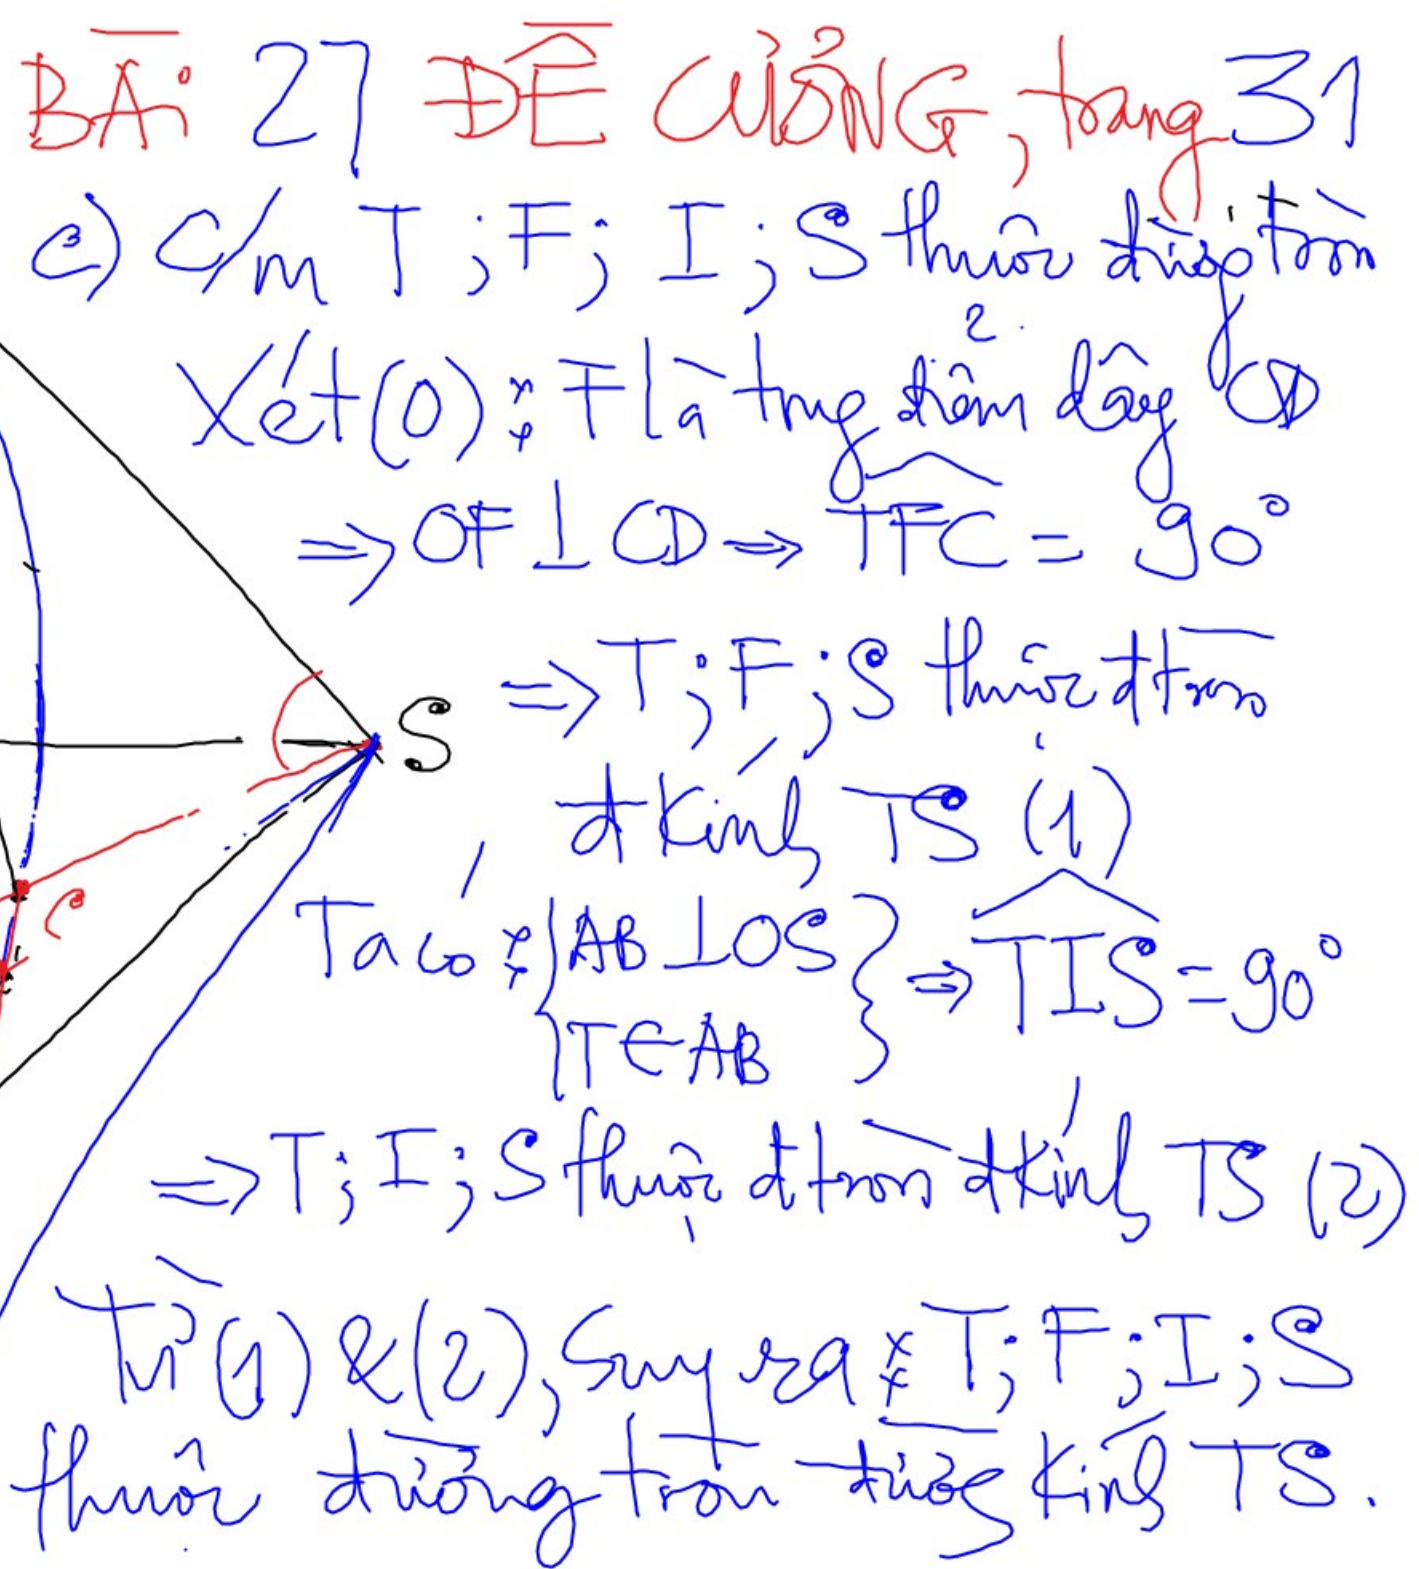 BÀI 27 ĐỀ CƯỜNG, trang 31
c) C/m T ; F ; I ; S thuộc đường tròn
Xét (O) : F là trung điểm dây CD
=> OF ⊥ CD => TFC = 90°
=> T ; F ; S thuộc đtròn
S
đkính TS (1)
C
Ta có : { AB ⊥ OS } => TIS = 90°
T ∈ AB
=> T ; I ; S thuộc đtròn đkính TS (2)
Từ (1) & (2), Suy ra : T ; F ; I ; S
thuộc đường tròn đường kính TS.